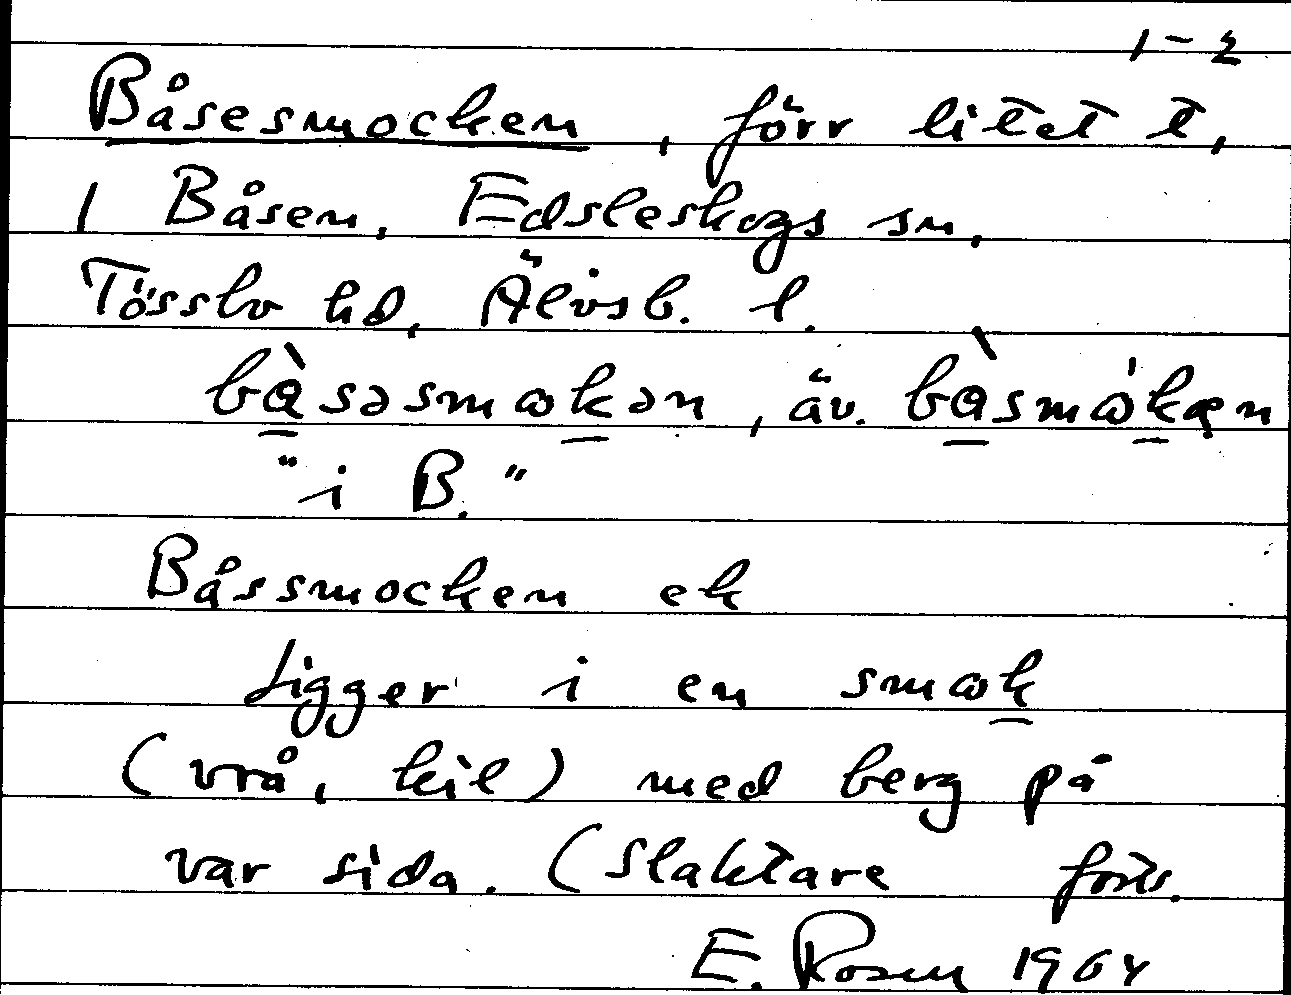 1-2
Båsesmocken, förr litet t,
1 Båsen, Edsleskogs sn,
Tössbo hd, Älvsb. l.
bàsəsmɷkən, äv. bàsmɷ́kæn
"i B."
Båssmocken ek
Ligger i en smɷk
(vrå, kil) med berg på
var sida. (Slaktare forts.
E. Rosen 1964